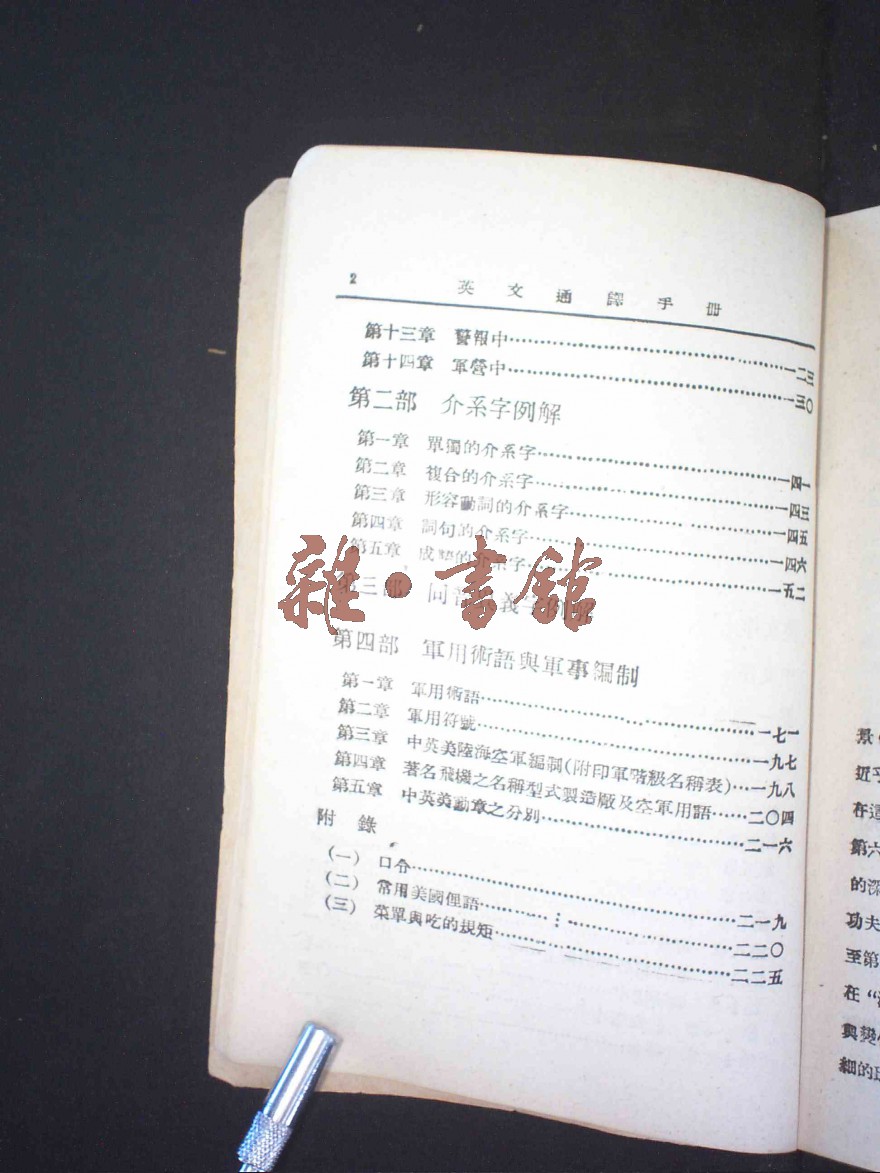 2 英文通譯手冊
第十三章 警報中……一二三
第十四章 軍營中……一三〇
第二部 介系字例解
第一章 單獨的介系字……一四一
第二章 複合的介系字……一四三
第三章 形容動詞的介系字……一四五
第四章 詞句的介系字……一四六
第五章 成 的介系字……一五二
第三部 同 義字例解
第四部 軍用術語與軍事編制
第一章 軍用術語……一七一
第二章 軍用符號……一九七
第三章 中英美陸海空軍編制(附印軍階級名稱表)…一九八
第四章 著名飛機之名稱型式製造廠及空軍用語……二〇四
第五章 中英美勳章之分別……二一六
附錄
(一) 口令……二一九
(二) 常用美國俚語……二二〇
(三) 菜單與吃的規矩……二二五
雜·書館
景
近乎
在這
第六
的深
功夫
至第
在“
與變
細的